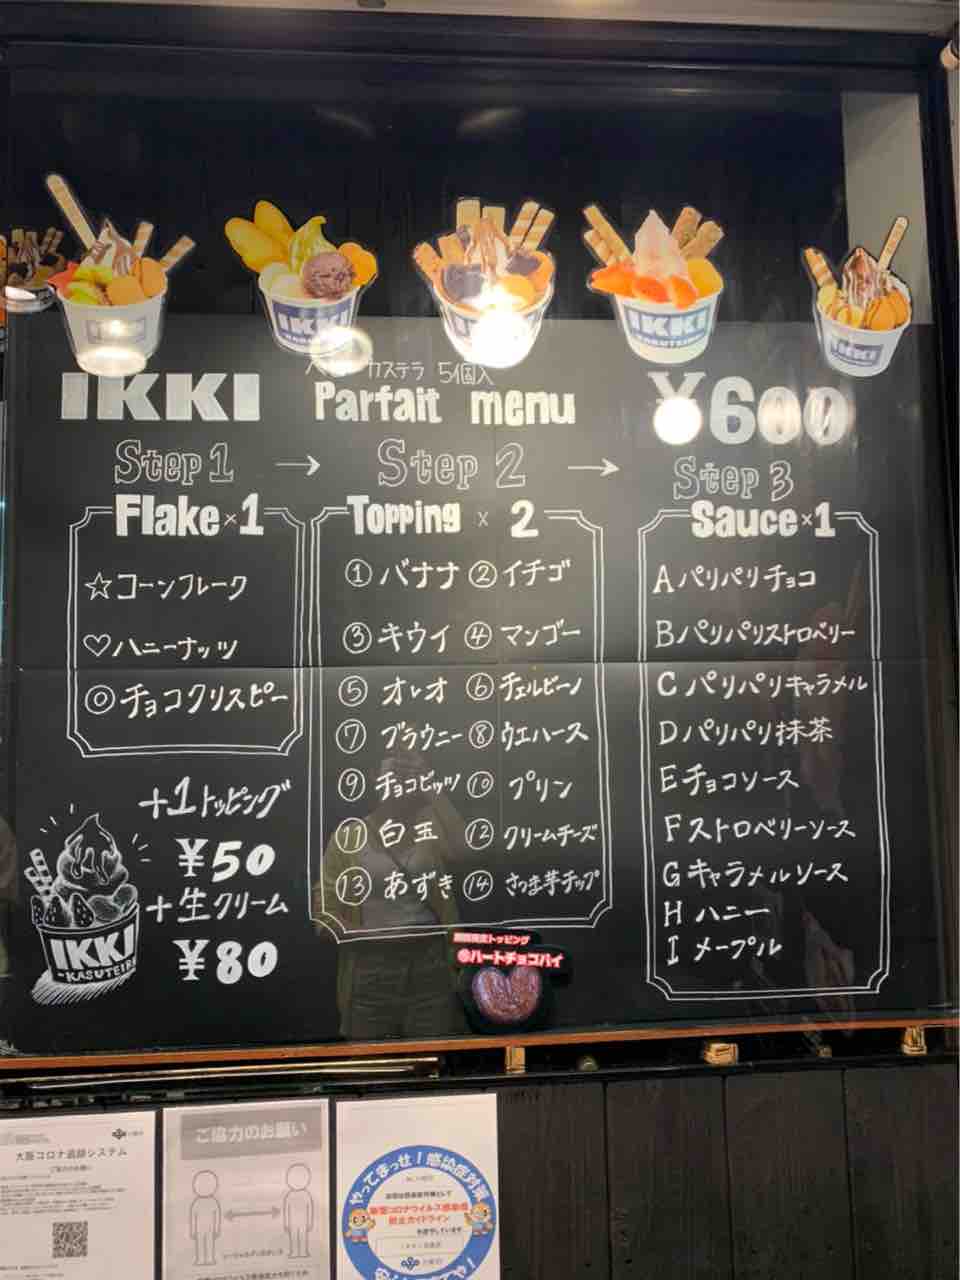 IKKI
IKKI
KASUTEIRA
IKKI
IKKI
KASUTEIRA
IKKI
カステラ 5個入
IKKI Parfait menu ¥600
Step 1 → Step 2 → Step 3
Flake×1
☆コーンフレーク
♡ハニーナッツ
◎チョコクリスピー
Topping × 2
①バナナ ②イチゴ
③キウイ ④マンゴー
⑤オレオ ⑥チェルビーノ
⑦ブラウニー ⑧ウエハース
⑨チョコビッツ ⑩プリン
⑪白玉 ⑫クリームチーズ
⑬あずき ⑭さつま芋チップ
Sauce×1
Aパリパリチョコ
Bパリパリストロベリー
Cパリパリキャラメル
Dパリパリ抹茶
Eチョコソース
Fストロベリーソース
Gキャラメルソース
Hハニー
Iメープル
+1トッピング
¥50
+生クリーム
¥80
IKKI
-KASUTEIRA
期間限定トッピング
ハートチョコパイ
大阪コロナ追跡システム
ご協力のお願い
ご協力のお願い
やってまっせ!感染症対策
新型コロナウイルス感染症
防止ガイドライン